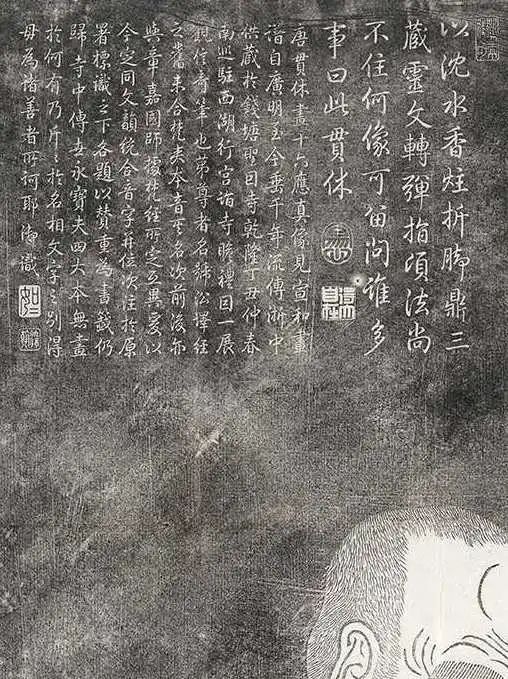 以沈水香炷折脚鼎三
藏靈文轉彈指頃法尚
不住何像可留問誰多
事曰此貫休
唐貫休畫十六應真像見宣和畫
譜自廣明至今垂千年流傳浙中
供藏於錢塘聖因寺乾隆丁丑仲春
南巡駐西湖行宮詣寺瞻禮因一展
觀信奇筆也第尊者名號沿譯經
之舊未合梵夾本音其名次前後亦
與章嘉國師據梵經所定互異爰以
今定同文韻統合音字并位次注於原
署標識之下各題以贊重為書籤仍
歸寺中傳世永寶夫四大本無畫
於何有乃斤斤於名相文字之別得
毋為諸善者所訶耶御識